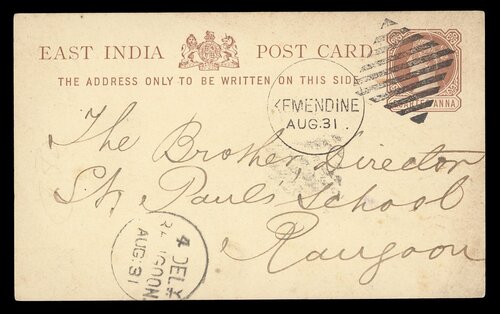 EAST INDIA POST CARD
THE ADDRESS ONLY TO BE WRITTEN ON THIS SIDE
KEMENDINE
AUG:31
The Brother Director
St. Pauls School
Rangoon
4 DELY
RANGOON
AUG:31
ANNA